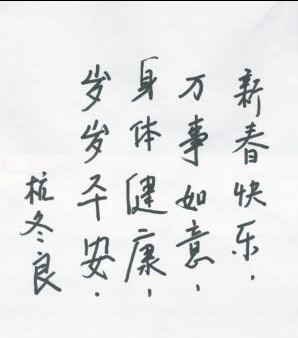 新春快乐.
万事如意,
身体健康,
岁岁平安.
杭冬良